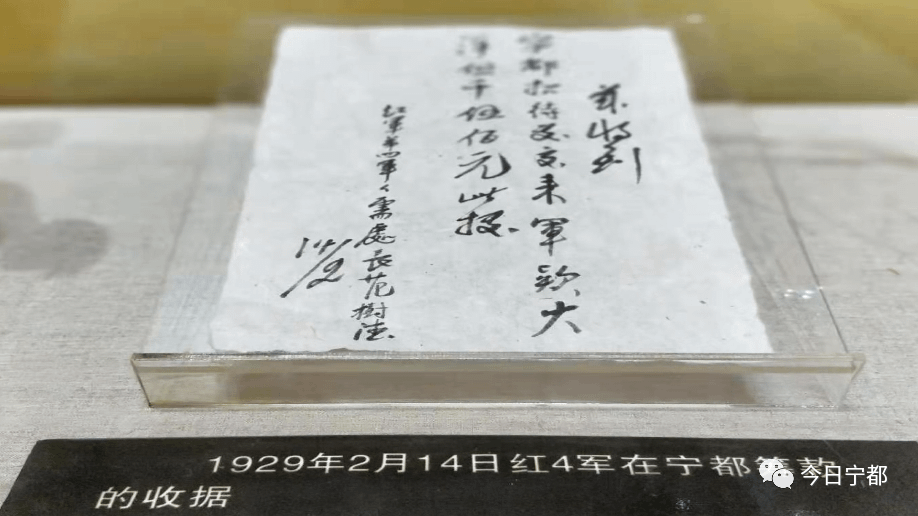 兹收到
寧都招待处交来軍款大
洋伍千伍佰元此据
红軍第四軍々需處長范樹德
14/2
1929年2月14日红4军在宁都筹款
的收据
今日宁都